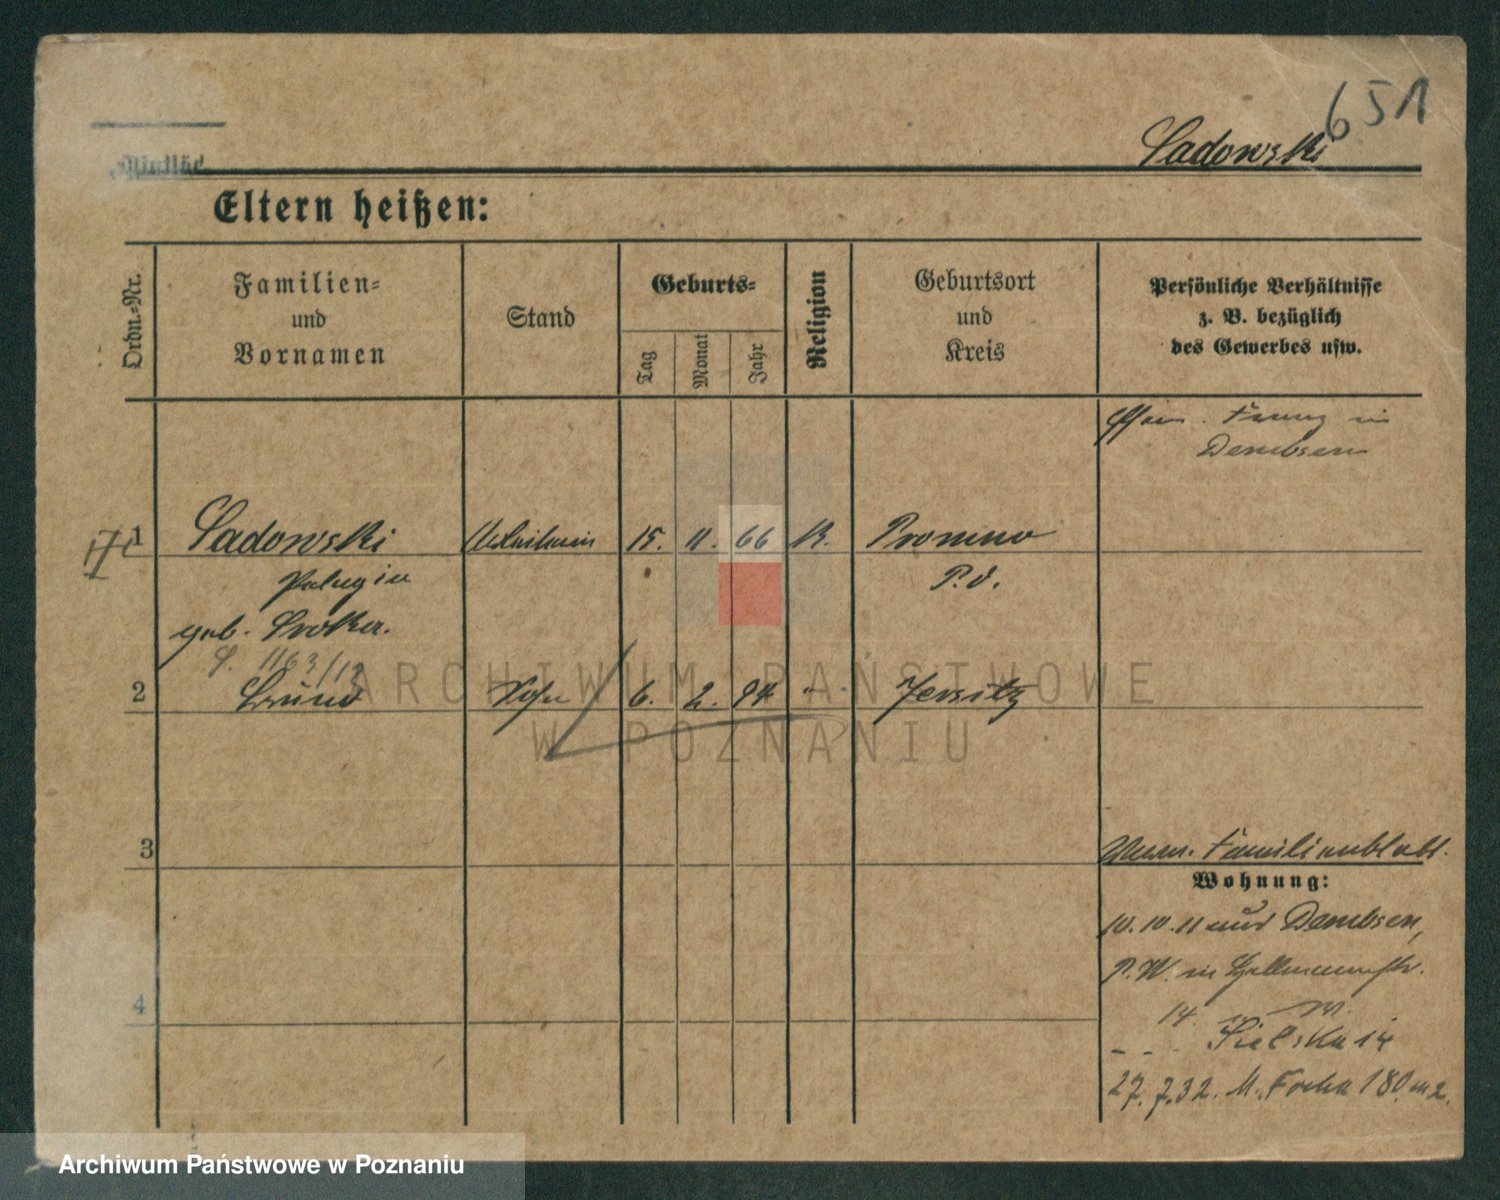 651
Sadowski
Eltern heißen:
Ordn.-Nr.
Familien-
und
Vornamen
Stand
Geburts-
Tag
Monat
Jahr
Religion
Geburtsort
und
Kreis
Persönliche Verhältnisse
z. B. bezüglich
des Gewerbes usw.
in
Dembsen
1 Sadowski 15. 11. 66 K. Promno
Pelagia P.O.
geb. Sroka.
S. 1163/13
2 Bruno Sohn 6. 2. 94 Jersitz
3
Familienblatt.
Wohnung:
10.10.11 aus Dembsen,
P.W. in
14
4
Sielska 14
27.7.32. M. Focha 180 m 2.
ARCHIWUM PAŃSTWOWE
W POZNANIU
Archiwum Państwowe w Poznaniu